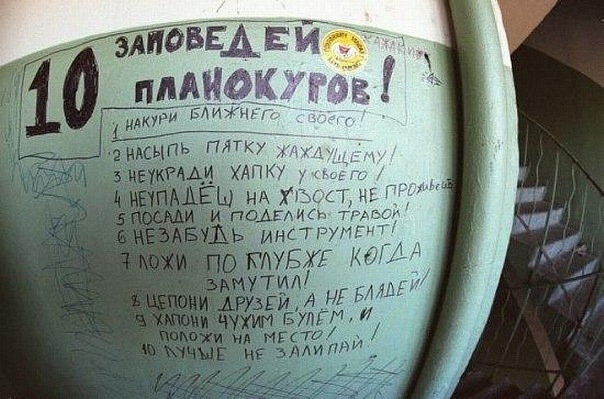 10 ЗАПОВЕДЕЙ
ПЛАНОКУРОВ!
1 НАКУРИ БЛИЖНЕГО СВОЕГО!
2 НАСЫПЬ ПЯТКУ ЖАЖДУЩЕМУ!
3 НЕУКРАДИ ХАПКУ у СВОЕГО!
4 НЕУПАДЁШ НА ХВОСТ, НЕ
5 ПОСАДИ И ПОДЕЛИСЬ ТРАВОЙ!
6 НЕЗАБУДЬ ИНСТРУМЕНТ!
7 ЛОЖИ ПО ГЛУБЖЕ КОГДА
ЗАМУТИЛ!
8 ЦЕПОНИ ДРУЗЕЙ, А НЕ БЛЯДЕЙ!
9 ХАПОНИ ЧУЖИМ БУЛЕМ, И
ПОЛОЖИ НА МЕСТО!
10 ЛУЧШЕ НЕ ЗАЛИПАЙ!